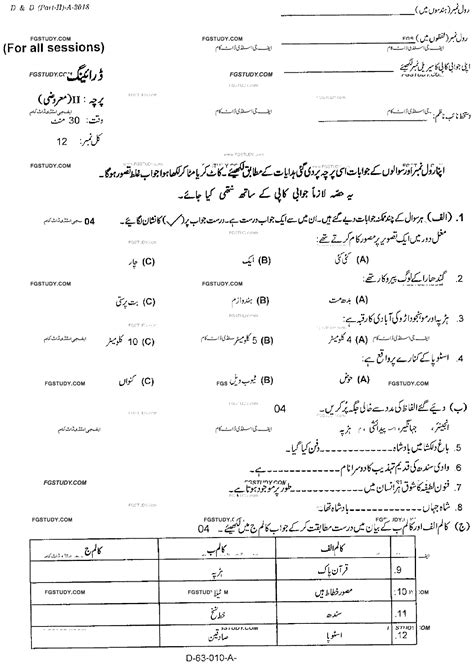 D & D (Part-II)-A-2018
رول نمبر (ہندسوں میں)
رول نمبر (لفظوں میں)
FGSTUDY.COM
(For all sessions)
ایف جی اسٹڈی ڈاٹ کام
ڈرائینگ
FGSTUDY.COM
اپنی جوابی کاپی کا سیریل نمبر لکھیئے
پرچہ : II (معروضی)
وقت: 30 منٹ
دستخط نائب ناظم:
کل نمبر: 12
FGSTUDY.COM
اپنا رول نمبر اور سوالوں کے جوابات اسی پرچہ پر دی گئی ہدایات کے مطابق لکھیئے۔ کاٹ کر یا مٹا کر لکھا ہوا جواب غلط تصور ہو گا۔
یہ حصہ لازماً جوابی کاپی کے ساتھ نتھی کیا جائے۔
1. (الف) ہر سوال کے چند ممکنہ جوابات دیے گئے ہیں۔ ان میں سے ایک جواب درست ہے۔ درست جواب پر (✓) کا نشان لگائیے۔ 04
مغل دور میں ایک تصویر پر مصور کام کرتے تھے:
(A) کئی کئی (B) ایک (C) چار
2. گندھارا کے لوگ پیروکار تھے:
(A) بدھ مت (B) ہندو ازم (C) بت پرستی
3. ہڑپہ اور موہنجوداڑو کی آبادی کا رقبہ ہے:
(A) 4 کلومیٹر (B) 5 کلومیٹر (C) 10 کلومیٹر
4. اسٹوپا کے کنارے پر واقع ہے:
(A) حوض (B) ٹیوب ویل (C) کنواں
(ب) دیئے گئے الفاظ کی مدد سے خالی جگہ پُر کریں۔ 04
انجینئر، جہانگیر، پیدائشی، ہڑپہ
5. باغ دلکشا میں بادشاہ ............ دفن کیا گیا۔
6. وادی سندھ کی قدیم تہذیب کا دوسرا نام ............ ہے۔
7. فنون لطیفہ کا شوق ہر انسان میں ............ طور پر موجود ہوتا ہے۔
8. شاہ جہاں ............ بادشاہ تھا۔
(ج) کالم الف اور کالم ب کے بیان میں درست مطابقت کر کے جواب کالم ج میں لکھیئے۔ 04
کالم الف کالم ب کالم ج
9. قرآن پاک ہڑپہ
10. مصور خطاط ہیں
11. سندھ خط نسخ
12. اسٹوپا صادقین
D-63-010-A-